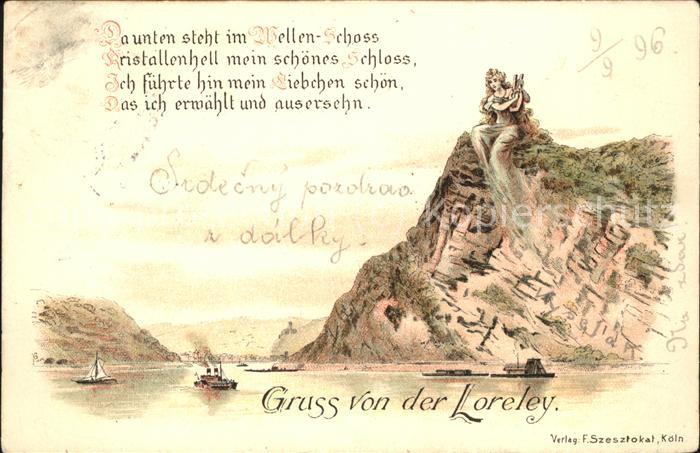 Da unten steht im Wellen-Schoss
Kristallenhell mein schönes Schloss,
Ich führte hin mein Liebchen schön,
Das ich erwählt und ausersehn.
9/9 96.
Srdečný pozdrav
z dálky.
Gruss von der Loreley.
Verlag: F. Szesztokat, Köln